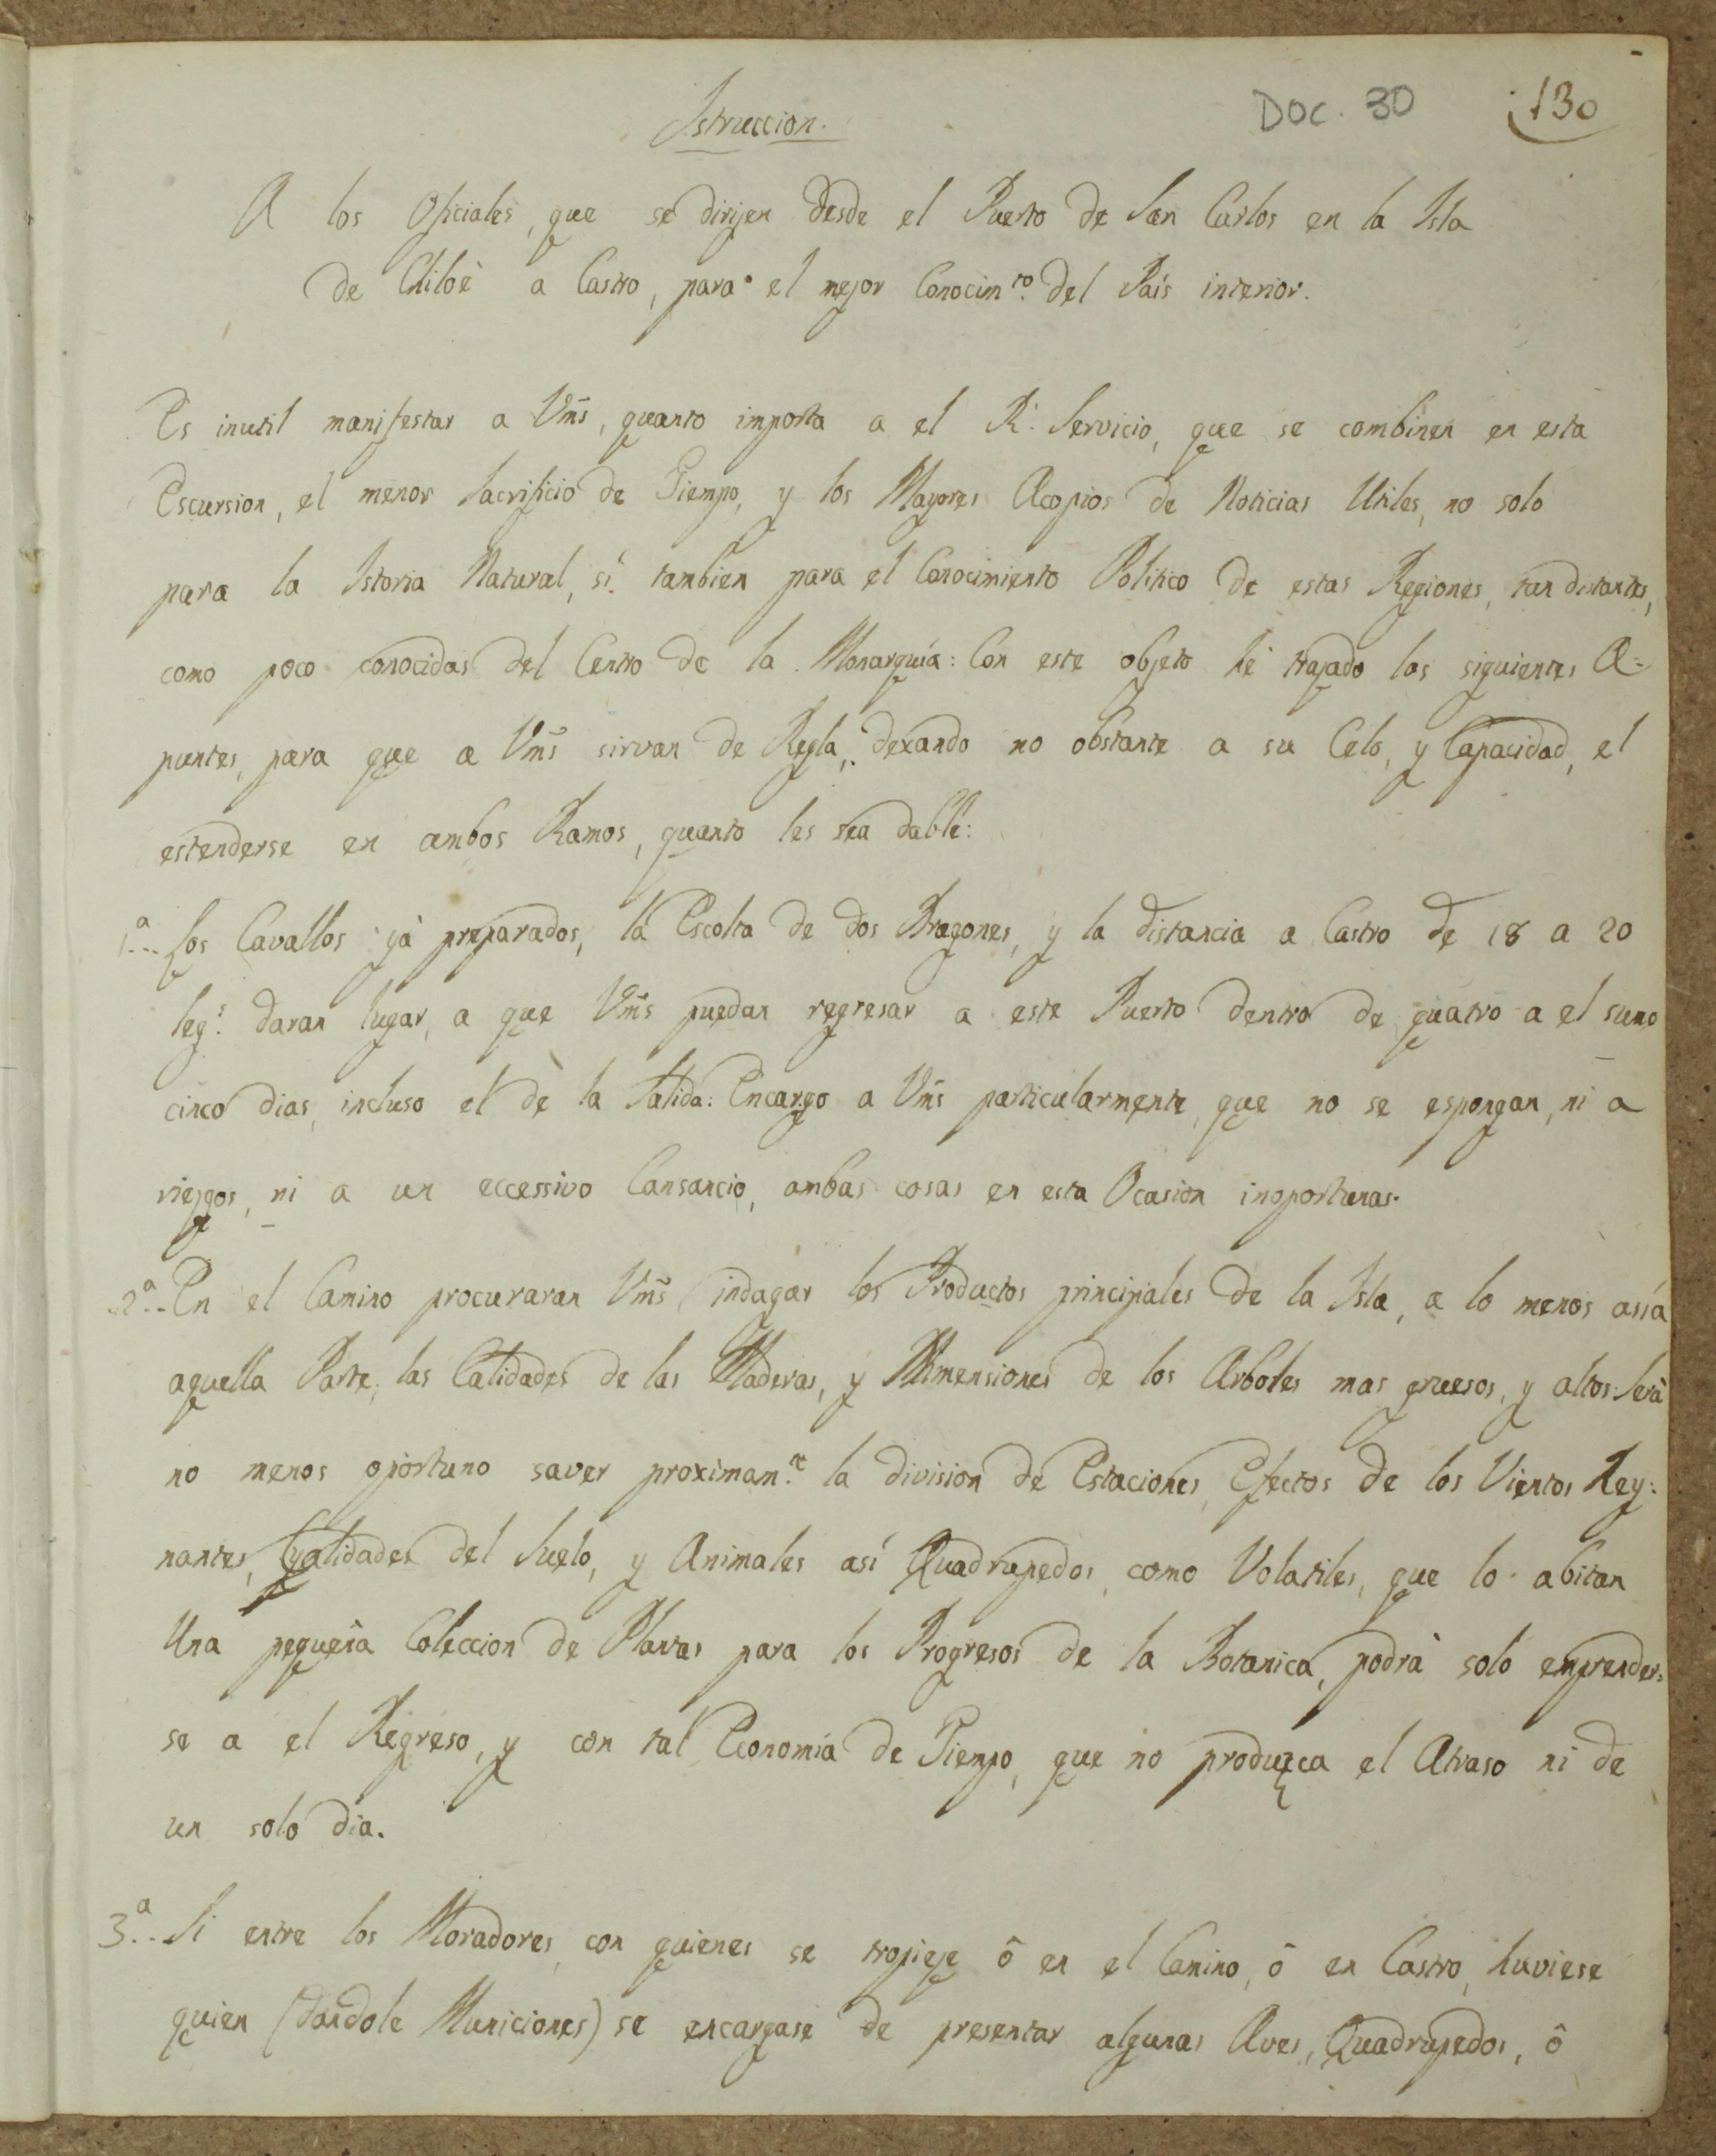 DOC. 30
130
Istruccion.
A los Oficiales, que se dirijen desde el Puerto de San Carlos en la Isla
de Chiloè a Castro, para el mejor Conocim.to del País interior.
Es inutil manifestar a Vms, quanto importa a el R.l Servicio, que se combinen en esta
Escursion, el menor Sacrificio de Tiempo, y los Mayores Acopios de Noticias Utiles, no solo
para la Istoria Natural, sí tambien para el Conocimiento Politico de estas Regiones, tan distantes,
como poco conocidas del Centro de la Monarquía: Con este objeto hè trazado los siguientes A=
puntes, para que a Vms sirvan de Regla, dexando no obstante a su Celo, y Capacidad, el
estenderse en ambos Ramos, quanto les sea dable:
1.a.. Los Cavallos yà preparados, la Escolta de dos Dragones, y la distancia a Castro de 18 a 20
leg.s daran lugar, a que Vms puedan regresar a este Puerto dentro de quatro a el sumo
cinco dias, incluso el de la Salida: Encargo a Vms particularmente, que no se espongan, ni a
riezgos, ni a un eccessivo Cansancio, ambas cosas en esta Ocasion inoportunas.
2.a.. En el Camino procuraran Vms indagar los Productos principales de la Isla, a lo menos asía
aquella Parte, las Calidades de las Maderas, y Dimensiones de los Arboles mas gruesos, y altos: Serà
no menos oportuno saver proximam.te la division de Estaciones, Efectos de los Vientos Rey=
nantes, Qalidades del Suelo, y Animales así Quadrupedos, como Volatiles, que lo abitan
Una pequeña Coleccion de Plantas para los Progresos de la Botanica, podrà solo emprender=
se a el Regreso, y con tal Economía de Tiempo, que no produzca el Atraso ni de
un solo dia.
3.a.. Si entre los Moradores, con quienes se tropieze ô en el Camino, ô en Castro, huviese
quien (dandole Municiones) se encargase de presentar algunas Aves, Quadrupedos, ô